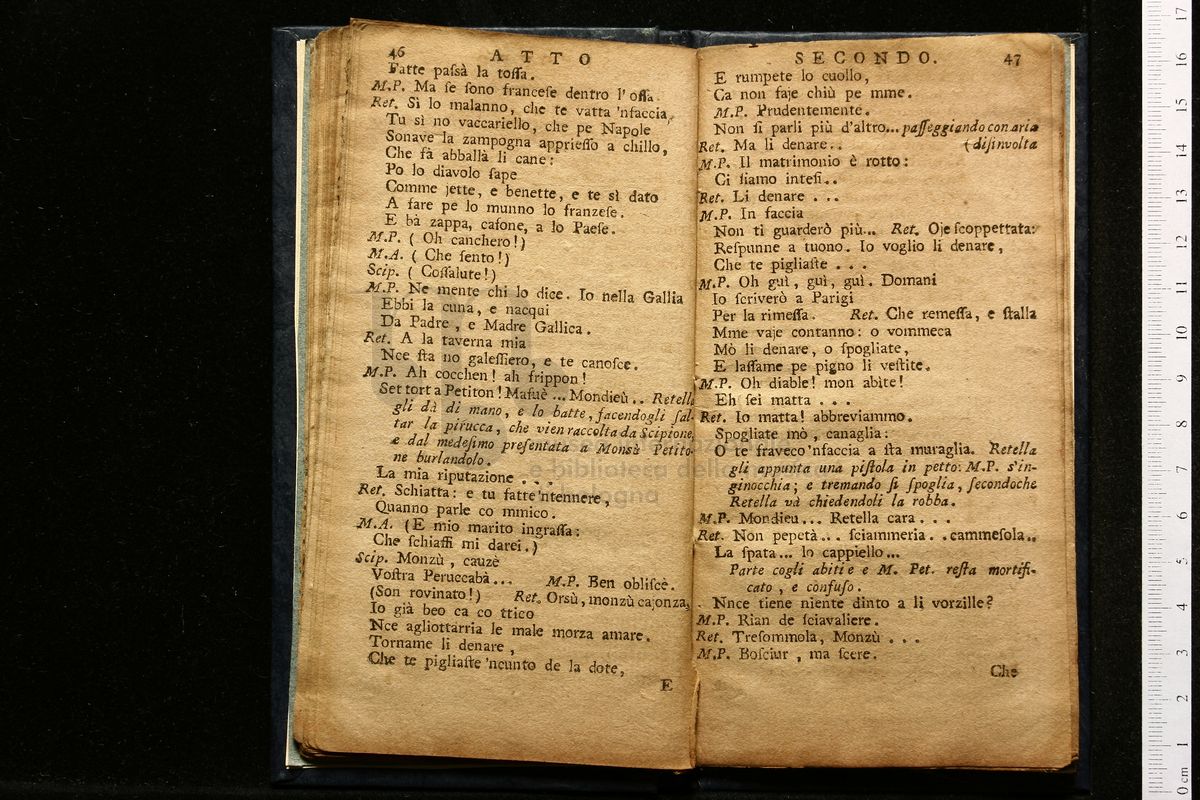 46 ATTO
Fatte paſsà la toſſa.
M.P. Ma ſe ſono franceſe dentro l'oſſa.
Ret. Sì lo malanno, che te vatta 'nfaccia,
Tu sì no vaccariello, che pe Napole
Sonave la zampogna apprieſſo a chillo,
Che fà abballà li cane:
Po lo diavolo ſape
Comme jette, e benette, e te sì dato
A fare pe lo munno lo franzeſe.
E bà zappa, cafone, a lo Paeſe.
M.P. ( Oh canchero!)
M.A. ( Che ſento!)
Scip. ( Coſſalute!)
M.P. Ne mente chi lo dice. Io nella Gallia
Ebbi la cuna, e nacqui
Da Padre, e Madre Gallica.
Ret. A la taverna mia
Nce ſta no galeſſiero, e te canoſce.
M.P. Ah cocchen! ah frippon!
Set tort a Petiton! Mafuè ... Mondieù .. Retella
gli dà di mano, e lo batte, facendogli ſal-
tar la pirucca, che vien raccolta da Scipione,
e dal medeſimo preſentata a Monsù Petito-
ne burlandolo.
La mia riputazione . . .
Ret. Schiatta: e tu fatre 'ntennere,
Quanno parle co mmico.
M.A. (E mio marito ingraſſa:
Che ſchiaffi mi darei.)
Scip. Monzù, cauzè
Voſtra Peruccabà... M.P. Ben obliſcè.
(Son rovinato!) Ret. Orsù, monzù cajonza,
Io già beo ca co ttico
Nce agliottarria le male morza amare.
Torname li denare,
Che te pigliaſte 'ncunto de la dote,
E
SECONDO. 47
E rumpete lo cuollo,
Ca non faje chiù pe mme.
M.P. Prudentemente.
Non ſi parli più d'altro... paſſeggiando con aria
Ret. Ma li denare.. (diſinvolta
M.P. Il matrimonio è rotto:
Ci ſiamo inteſi..
Ret. Li denare . . .
M.P. In faccia
Non ti guarderò più... Ret. Oje ſcoppettata:
Reſpunne a tuono. Io voglio li denare,
Che te pigliaſte . . .
M.P. Oh guì, guì, guì. Domani
Io ſcriverò a Parigi
Per la rimeſſa. Ret. Che remeſſa, e ſtalla
Mme vaje contanno: o vommeca
Mò li denare, o ſpogliate,
E laſſame pe pigno li veſtite.
M.P. Oh diable! mon abìte!
Eh ſei matta . . .
Ret. Io matta! abbreviammo.
Spogliate mò, canaglia:
O te fraveco 'nfaccia a ſta muraglia. Retella
gli appunta una piſtola in petto: M.P. s'in-
ginocchia; e tremando ſi ſpoglia, ſecondoche
Retella và chiedendoli la robba.
M.P. Mondieu... Retella cara . . .
Ret. Non pepetà... ſciammeria. . cammeſola..
La ſpata... lo cappiello...
Parte cogli abiti e e M. Pet. reſta mortifi-
cato, e confuſo.
Nnce tiene niente dinto a li vorzille?
M.P. Rian de ſciavaliere.
Ret. Treſommola, Monzù . . .
M.P. Boſciur, ma ſcere.
Che